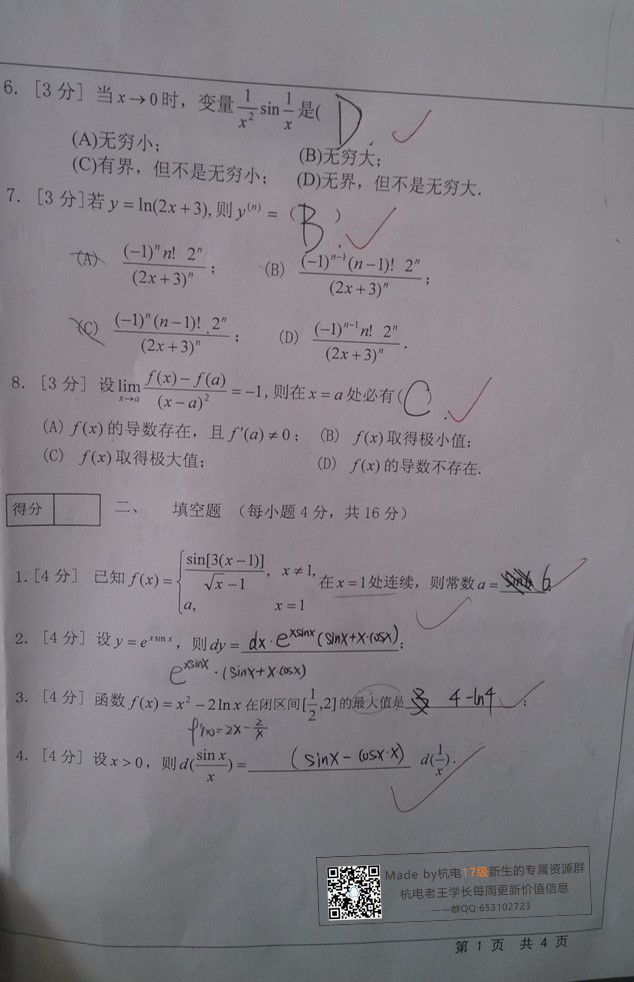 6. [3 分] 当 x→0 时, 变量 1/x² sin 1/x 是( D .
(A)无穷小; (B)无穷大;
(C)有界, 但不是无穷小; (D)无界, 但不是无穷大.
7. [3 分]若 y = ln(2x + 3), 则 y⁽ⁿ⁾ = ( B . )
(A) (−1)ⁿ n! 2ⁿ / (2x + 3)ⁿ ; (B) (−1)ⁿ⁻¹ (n−1)! 2ⁿ / (2x + 3)ⁿ ;
(C) (−1)ⁿ (n−1)! 2ⁿ / (2x + 3)ⁿ ; (D) (−1)ⁿ⁻¹ n! 2ⁿ / (2x + 3)ⁿ .
8. [3 分] 设 lim x→a f(x) − f(a) / (x − a)² = −1, 则在 x = a 处必有( C .
(A) f(x) 的导数存在, 且 f′(a) ≠ 0; (B) f(x) 取得极小值;
(C) f(x) 取得极大值; (D) f(x) 的导数不存在.
得分 二、 填空题 (每小题 4 分, 共 16 分)
1. [4 分] 已知 f(x) = { sin[3(x−1)] / √x − 1 , x ≠ 1, a, x = 1 在 x = 1 处连续, 则常数 a = 6
2. [4 分] 设 y = e^(x sin x), 则 dy = dx · e^(xsinx) (sinx + x·cosx) ;
e^(xsinx) · (sinx + x·cosx)
3. [4 分] 函数 f(x) = x² − 2 ln x 在闭区间 [1/2, 2] 的最大值是 4 − ln4 ;
f′(x) = 2x − 2/x
4. [4 分] 设 x > 0, 则 d(sin x / x) = (sinx − cosx·x) d(1/x).
Made by杭电17级新生的专属资源群
杭电老王学长每周更新价值信息
——群QQ:653102723
第 1 页 共 4 页